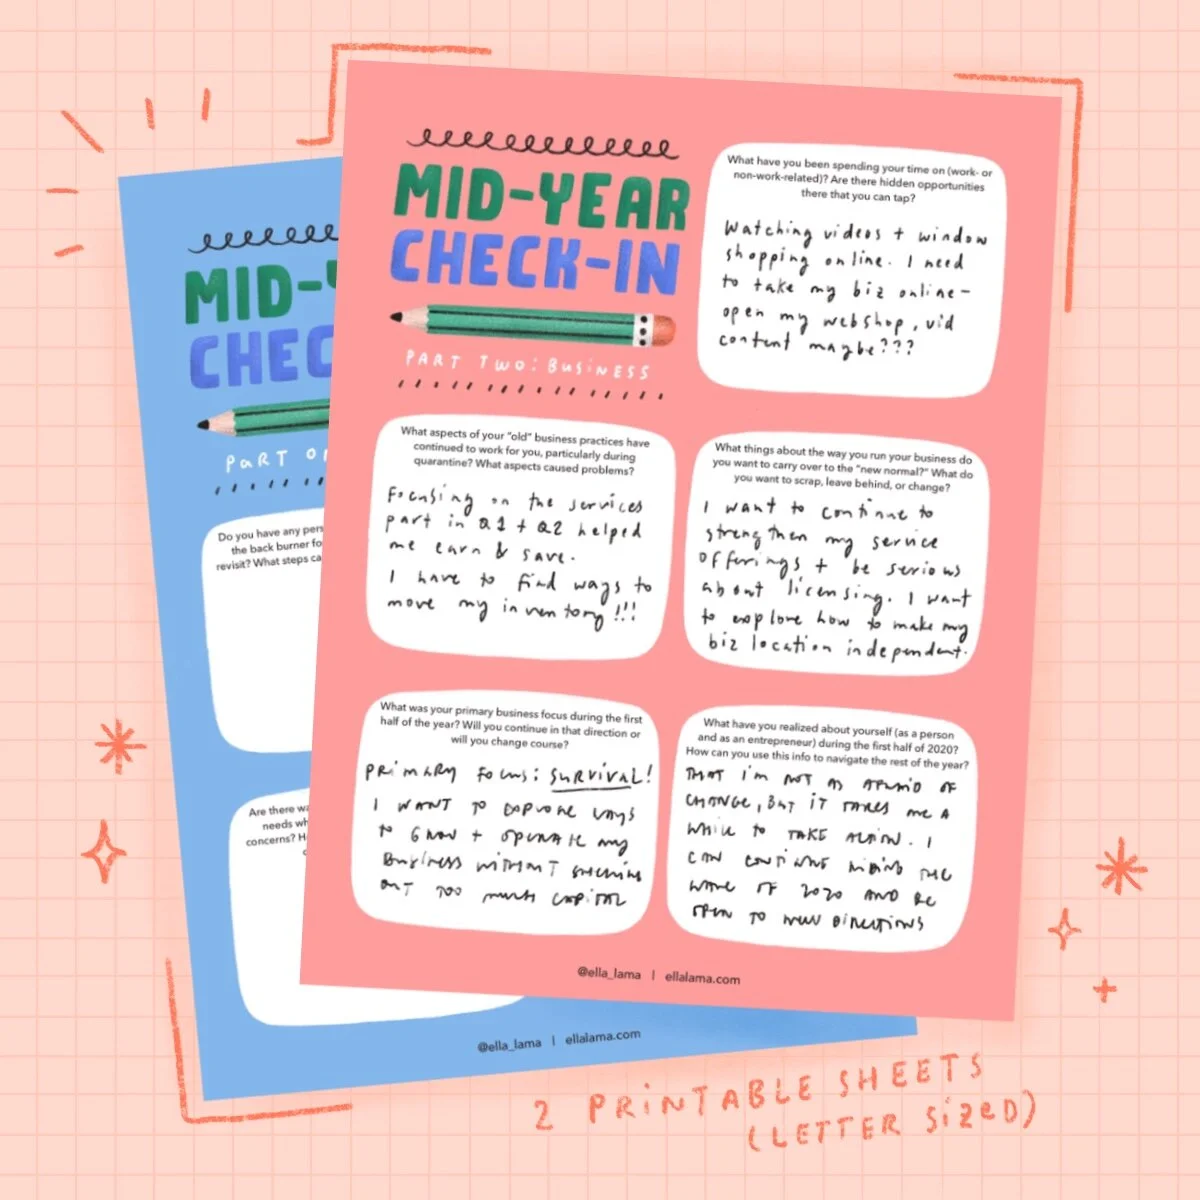 MID-YEAR
CHECK-IN
PART TWO: BUSINESS
What have you been spending your time on (work- or
non-work-related)? Are there hidden opportunities
there that you can tap?
Watching videos + window
shopping online. I need
to take my biz online-
open my webshop, vid
content maybe???
What aspects of your "old" business practices have
continued to work for you, particularly during
quarantine? What aspects caused problems?
Focusing on the services
part in Q1 + Q2 helped
me earn & save.
I have to find ways to
move my inventory!!!
What things about the way you run your business do
you want to carry over to the "new normal?" What do
you want to scrap, leave behind, or change?
I want to continue to
strengthen my service
offerings + be serious
about licensing. I want
to explore how to make my
biz location independent.
What was your primary business focus during the first
half of the year? Will you continue in that direction or
will you change course?
PRIMARY FOCUS: SURVIVAL!
I WANT TO EXPLORE WAYS
TO GROW + OPERATE MY
BUSINESS WITHOUT SHELLING
OUT TOO MUCH CAPITAL
What have you realized about yourself (as a person
and as an entrepreneur) during the first half of 2020?
How can you use this info to navigate the rest of the year?
THAT I'M NOT AS AFRAID OF
CHANGE, BUT IT TAKES ME A
WHILE TO TAKE ACTION. I
CAN CONTINUE RIDING THE
WAVE OF 2020 AND BE
OPEN TO NEW DIRECTIONS
@ella_lama | ellalama.com
MID-Y
CHEC
PART ON
Do you have any pers
the back burner fo
revisit? What steps ca
Are there wa
needs wh
concerns? H
@ella_lama | ellalama.com
2 PRINTABLE SHEETS
(LETTER SIZED)